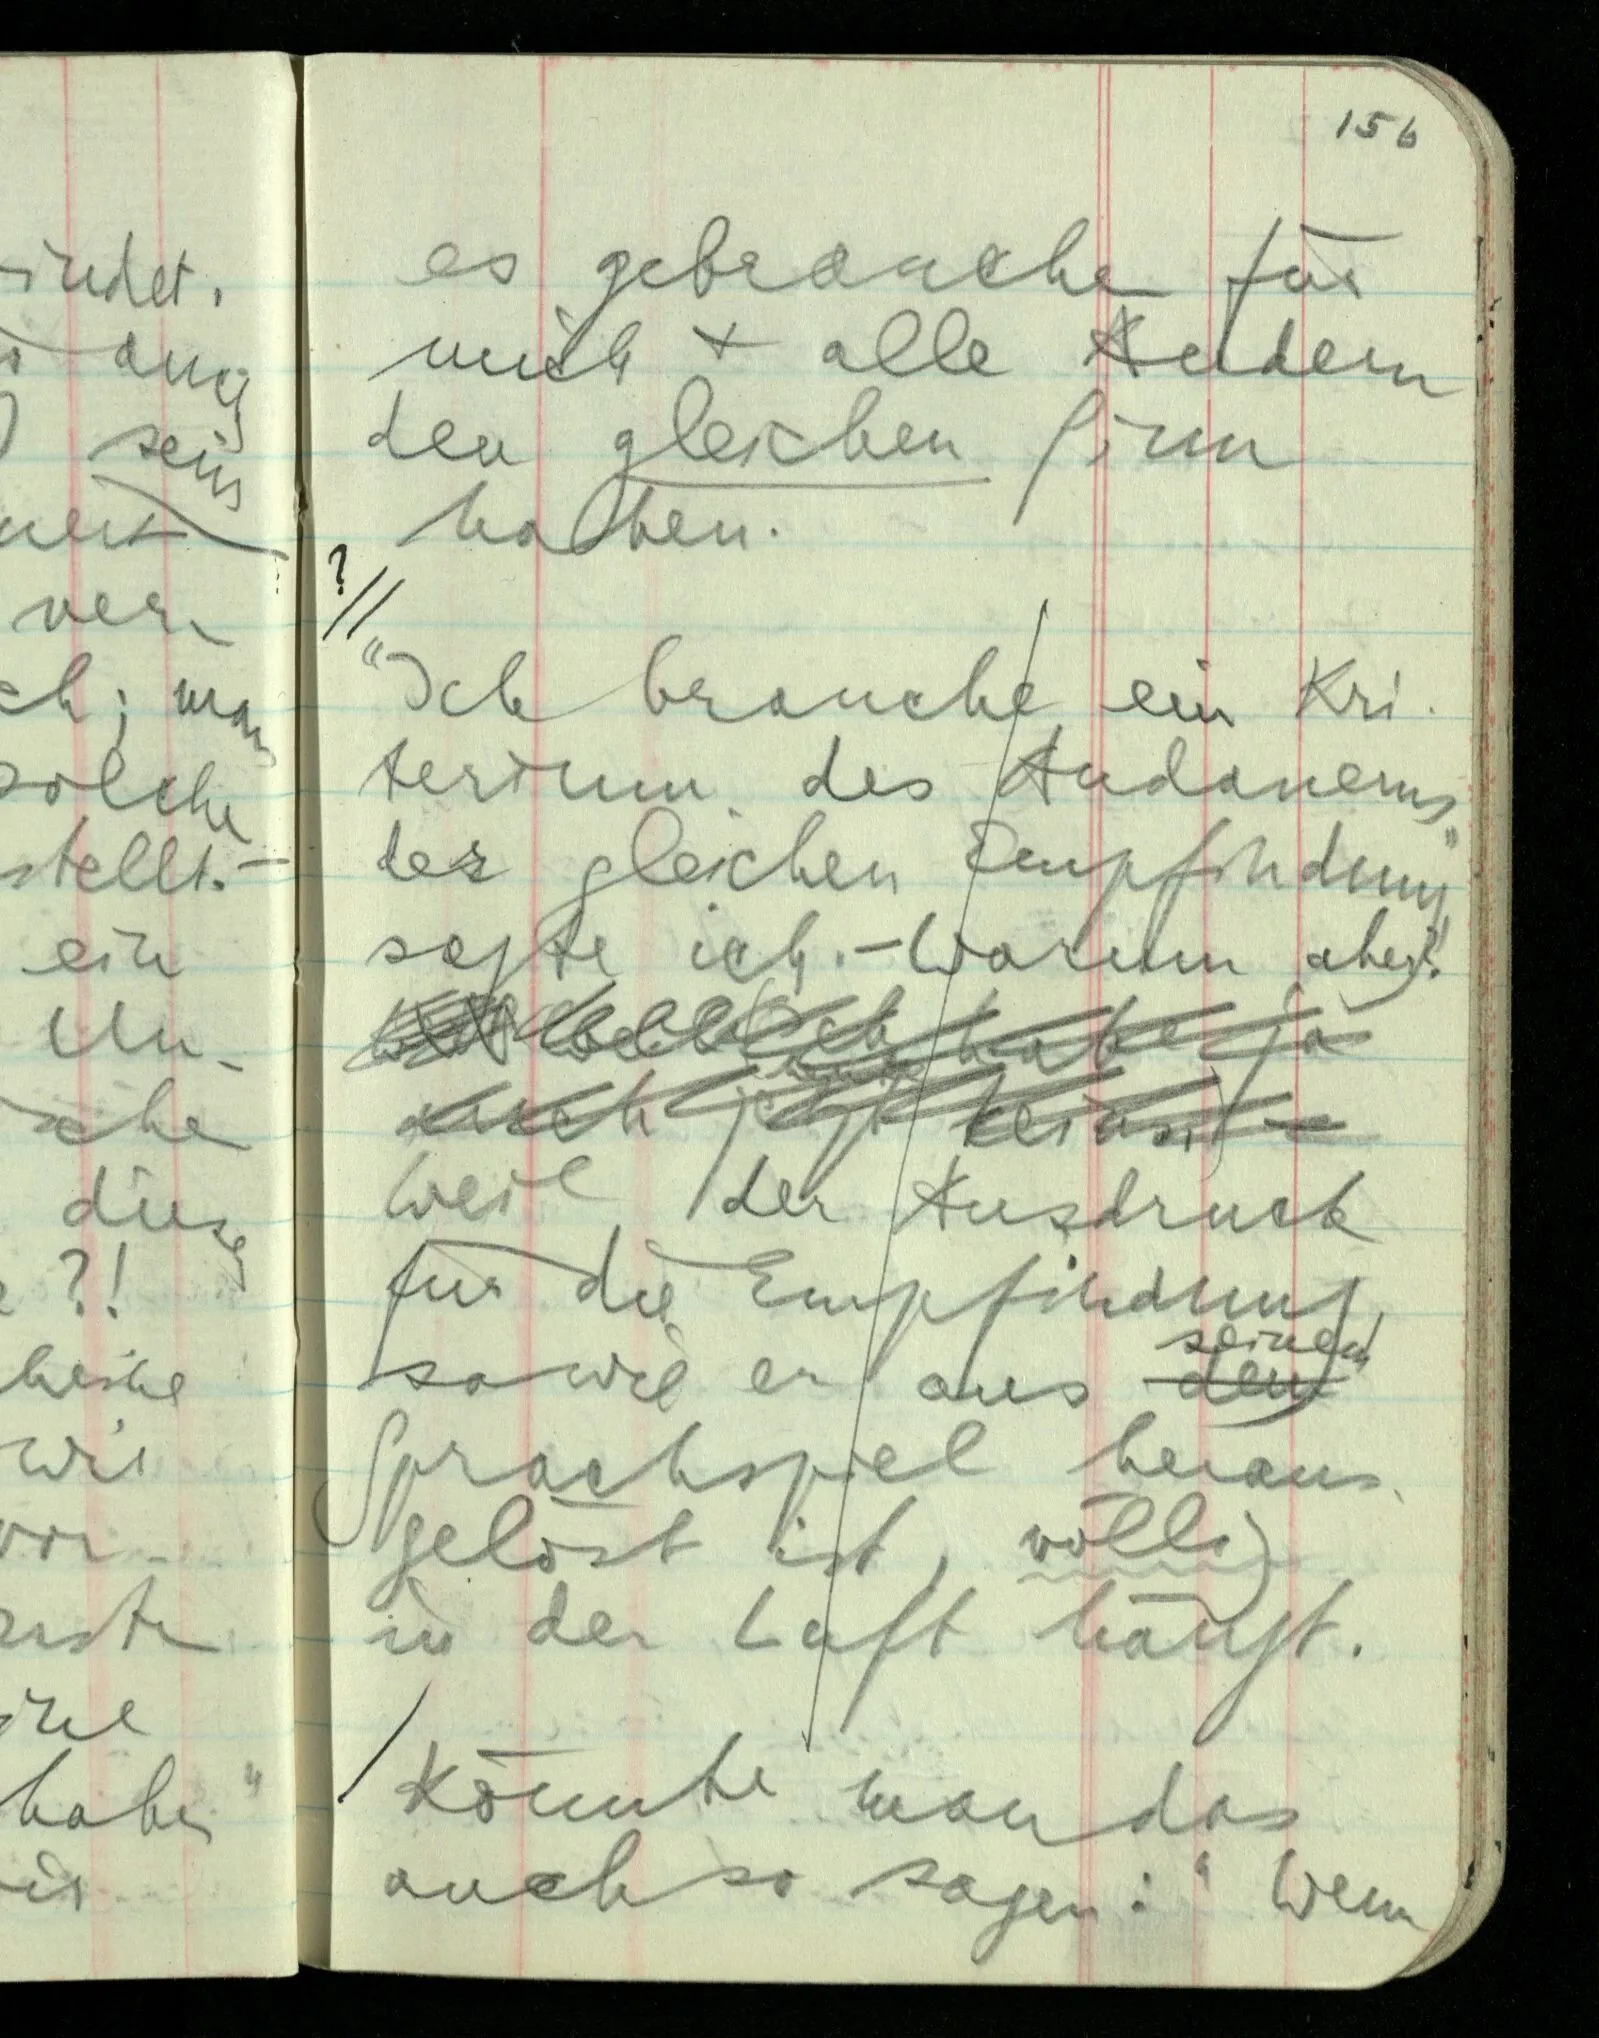 156
indet.
ang
sein
ver
ch; man
solche
stellt. –
ein
Un-
sche
diese
?!
wie
vor
habe"
es gebrauche für
mich + alle Andern
den gleichen Sinn
haben.
? //
"Ich brauche ein Kri-
terium des Andauerns
der gleichen Empfindung"
sagte ich. – Warum aber?
Ich habe ja
auch jetzt keins
weil der Ausdruck
für die Empfindung,
sowie er aus dem seinem
Sprachspiel heraus-
gelöst ist, völlig
in der Luft hängt.
/
Könnte man das
auch so sagen: "Wenn